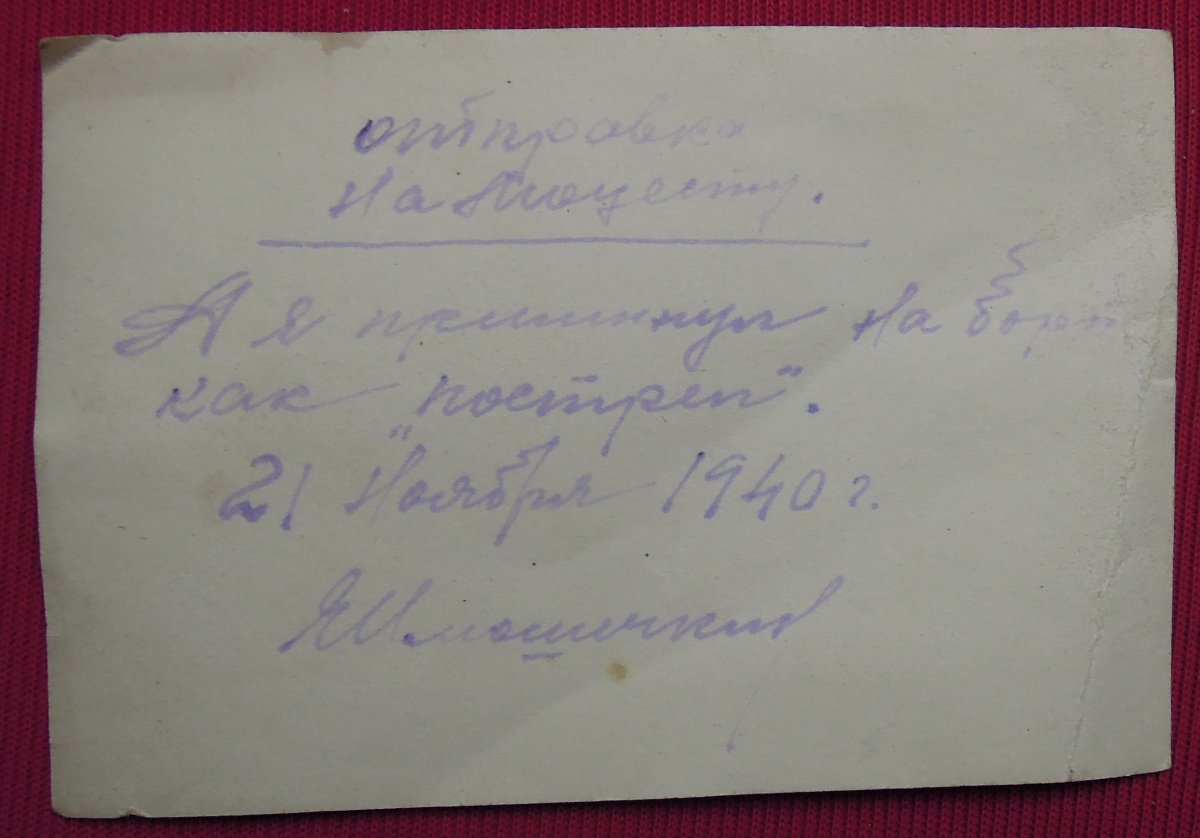 отправка
на Мюцесту.
А я примкнул на борт
как "пострел".
21 Ноября 1940 г.